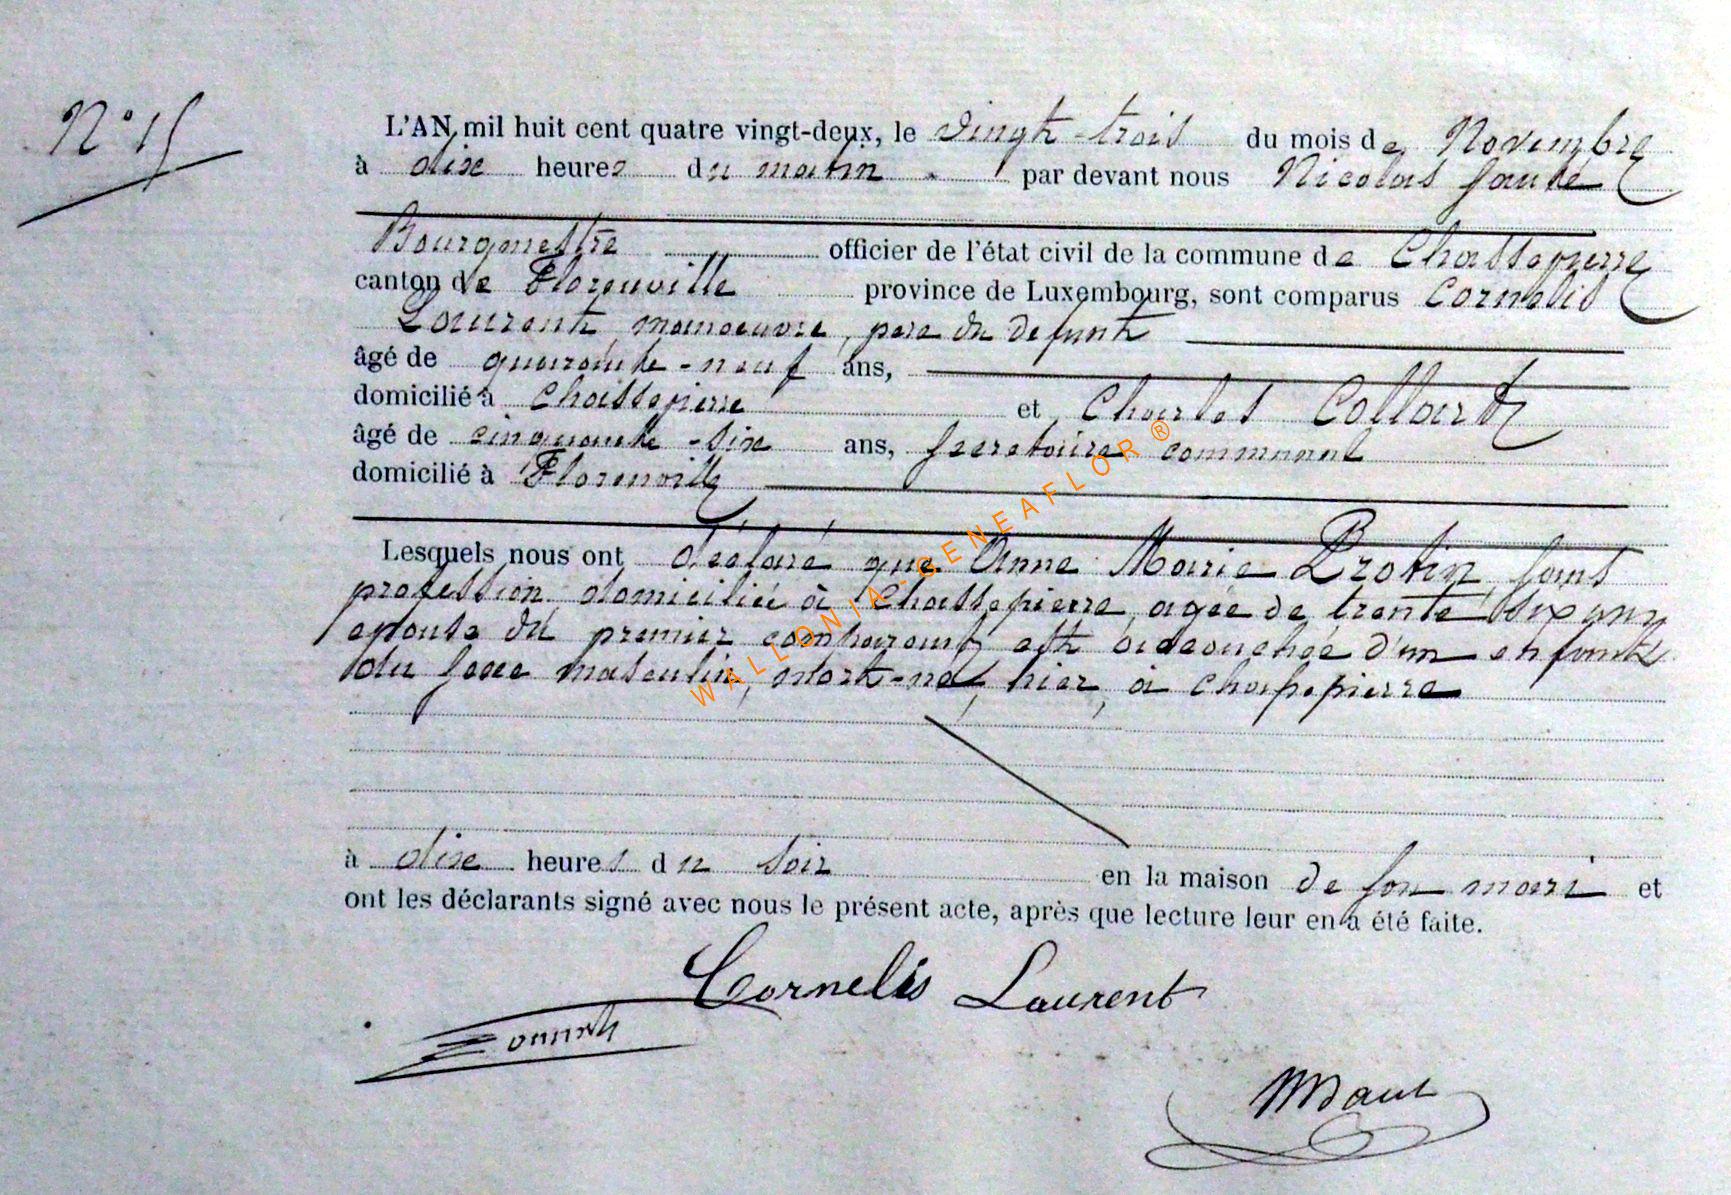 N° 15
L'AN mil huit cent quatre vingt-deux, le vingt-trois du mois de Novembre
à dix heures du matin par devant nous Nicolas
Bourgmestre officier de l'état civil de la commune de Chassepierre
canton de Florenville province de Luxembourg, sont comparus Cornelis
Laurent, manoeuvre, père du défunt
âgé de quarante-neuf ans,
domicilié à Chassepierre et Charles Collard
âgé de cinquante-six ans, secretaire communal
domicilié à Florenville
Lesquels nous ont déclaré que Anne Marie Protin, sans
profession, domiciliée à Chassepierre, agée de trente six ans
epouse du premier comparant est accouchée d'un enfant
du sexe masculin, mort-né, hier, à Chassepierre
à dix heures du soir en la maison de son mari et
ont les déclarants signé avec nous le présent acte, après que lecture leur en a été faite.
Cornelis Laurent
WALLONIA-GENEAFLOR ®